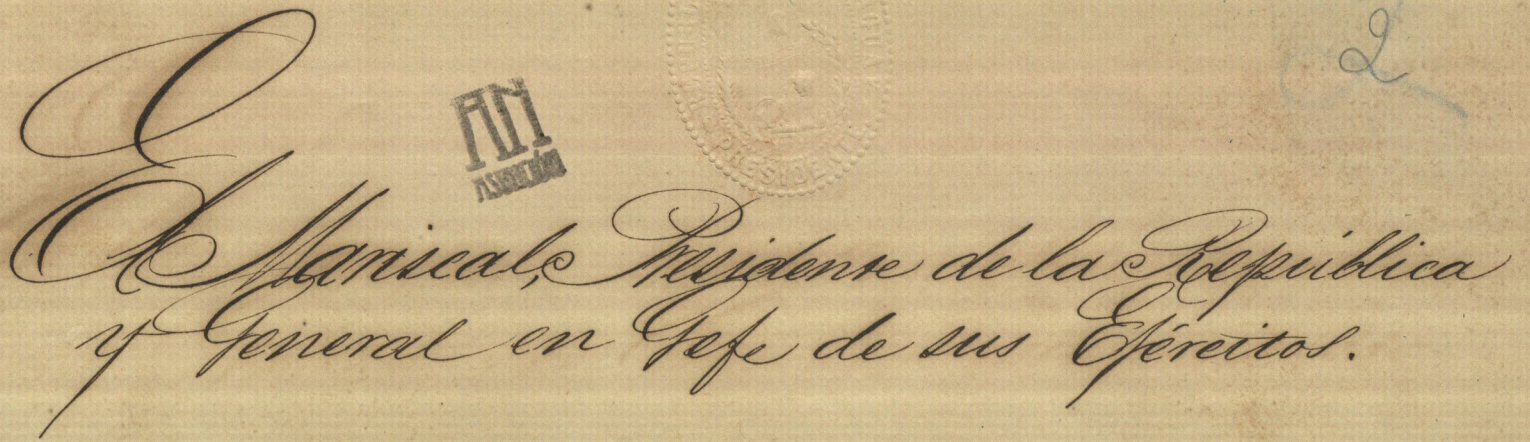 2
AN
ASUNCIÓN
PRESIDENTE
El Mariscal, Presidente de la República
y General en Gefe de sus Ejércitos.